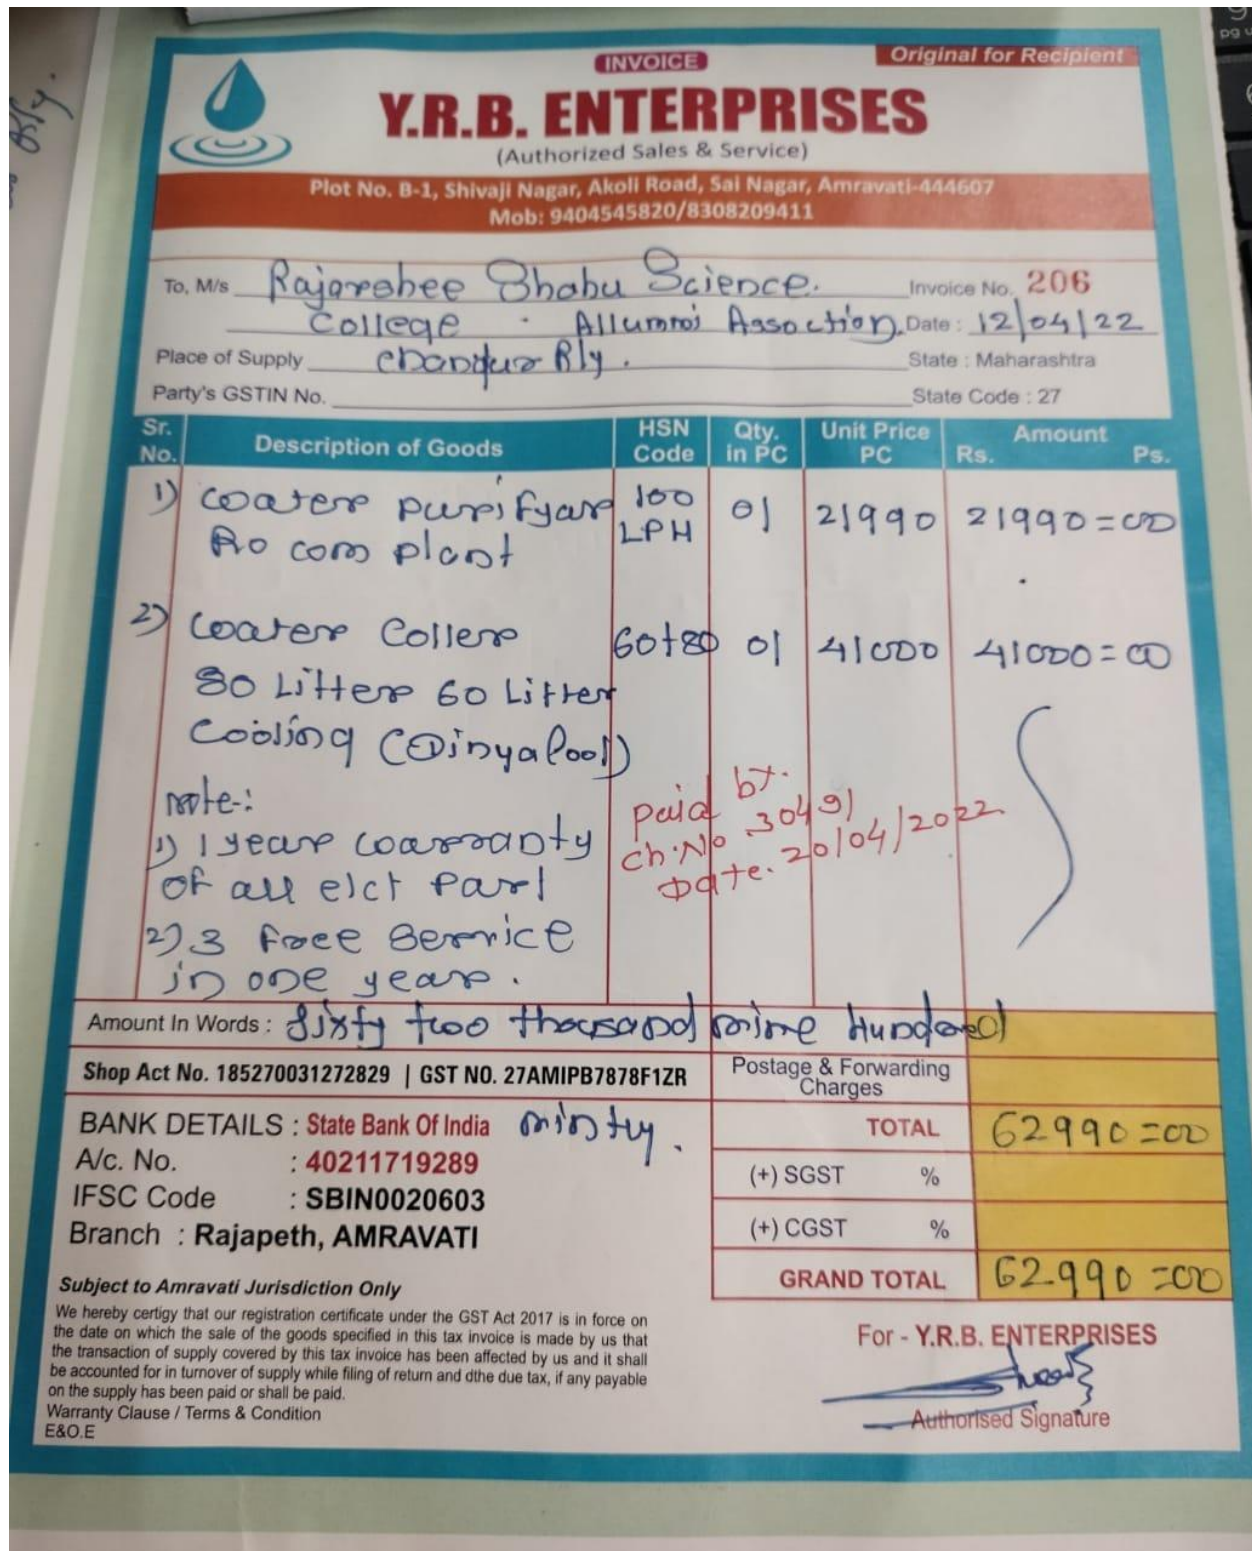 INVOICE
Original for Recipient
Y.R.B. ENTERPRISES
(Authorized Sales & Service)
Plot No. B-1, Shivaji Nagar, Akoli Road, Sai Nagar, Amravati-444607
Mob: 9404545820/8308209411
To, M/s Rajarshee Shahu Science. Invoice No. 206
College . Allumni Assoction. Date : 12/04/22
Place of Supply Chandur Rly. State : Maharashtra
Party's GSTIN No. State Code : 27
Sr. No. Description of Goods HSN Code Qty. in PC Unit Price PC Amount Rs. Ps.
1) Water purifyar 100 LPH 01 21990 21990=00
Ro com plant
2) Water Coller 60+80 01 41000 41000=00
80 Litter 60 Litter
Cooling
note-:
1) 1 year warranty
of all elct Part
2) 3 Free Service
in one year.
Paid by.
ch.No 30491
Date. 20/04/2022
Amount In Words : Sixty two thousand nine Hundred
Shop Act No. 185270031272829 | GST NO. 27AMIPB7878F1ZR
Postage & Forwarding Charges
BANK DETAILS : State Bank Of India ninty.
TOTAL 62990=00
A/c. No. : 40211719289
(+) SGST %
IFSC Code : SBIN0020603
(+) CGST %
Branch : Rajapeth, AMRAVATI
GRAND TOTAL 62990=00
Subject to Amravati Jurisdiction Only
We hereby certigy that our registration certificate under the GST Act 2017 is in force on
the date on which the sale of the goods specified in this tax invoice is made by us that
the transaction of supply covered by this tax invoice has been affected by us and it shall
be accounted for in turnover of supply while filing of return and dthe due tax, if any payable
on the supply has been paid or shall be paid.
Warranty Clause / Terms & Condition
E&O.E
For - Y.R.B. ENTERPRISES
Authorised Signature
pg u